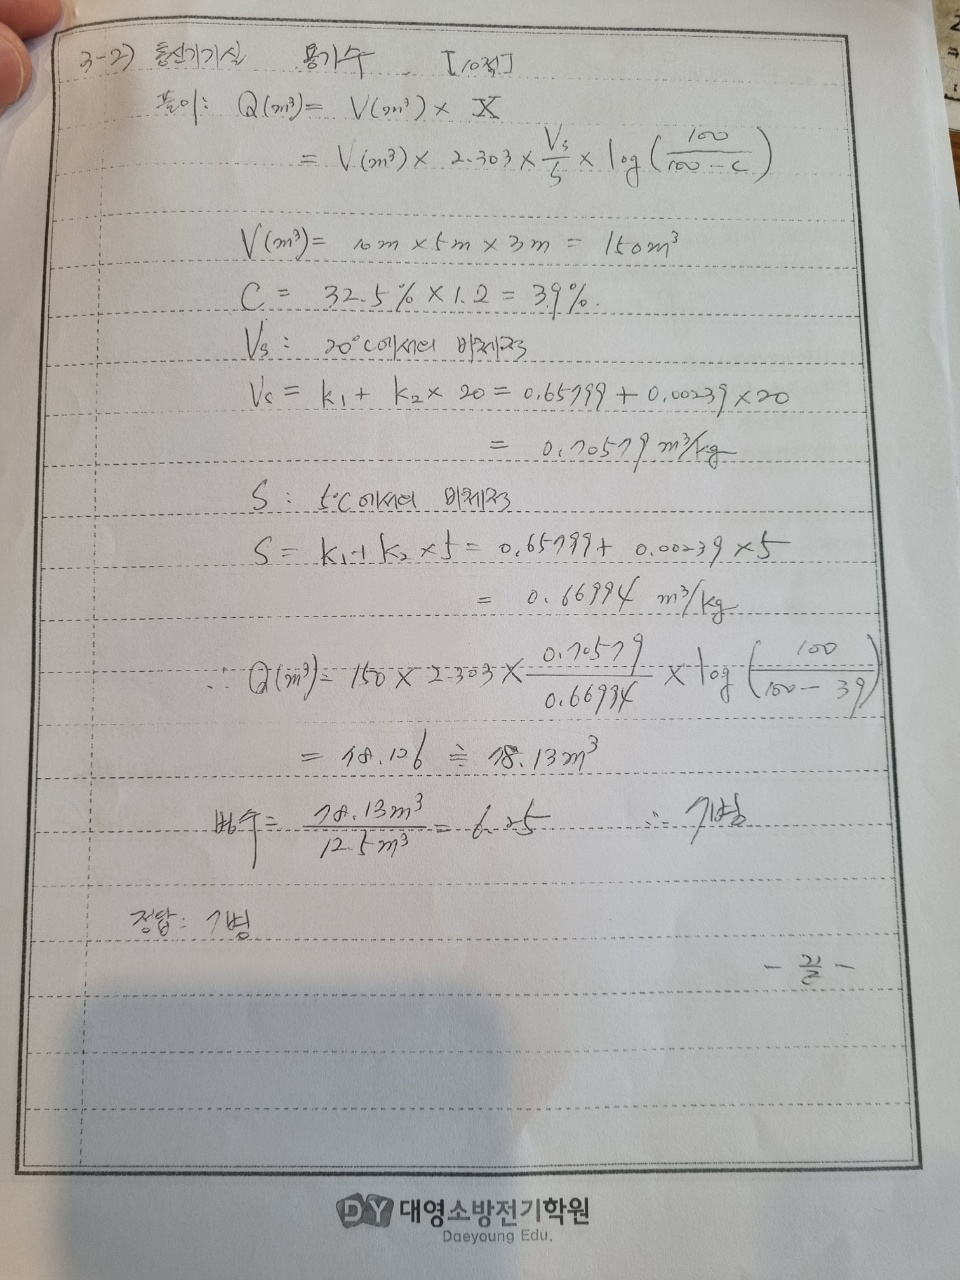 3-2) 통신기기실 용기수 [10점]
풀이: Q(m³) = V(m³) × X
= V(m³) × 2.303 × Vs/S × log(100/(100-C))
V(m³) = 10m × 5m × 3m = 150m³
C = 32.5% × 1.2 = 39%.
Vs : 20°C에서의 비체적
Vs = k₁ + k₂ × 20 = 0.65799 + 0.00239 × 20
= 0.70579 m³/kg
S : 5°C에서의 비체적
S = k₁ + k₂ × 5 = 0.65799 + 0.00239 × 5
= 0.66994 m³/kg
∴ Q(m³) = 150 × 2.303 × 0.70579/0.66994 × log(100/(100-39))
= 78.126 ≒ 78.13m³
병수 = 78.13m³/12.5m³ = 6.25 ∴ 7병
정답 : 7병
- 끝 -
DY 대영소방전기학원
Daeyoung Edu.